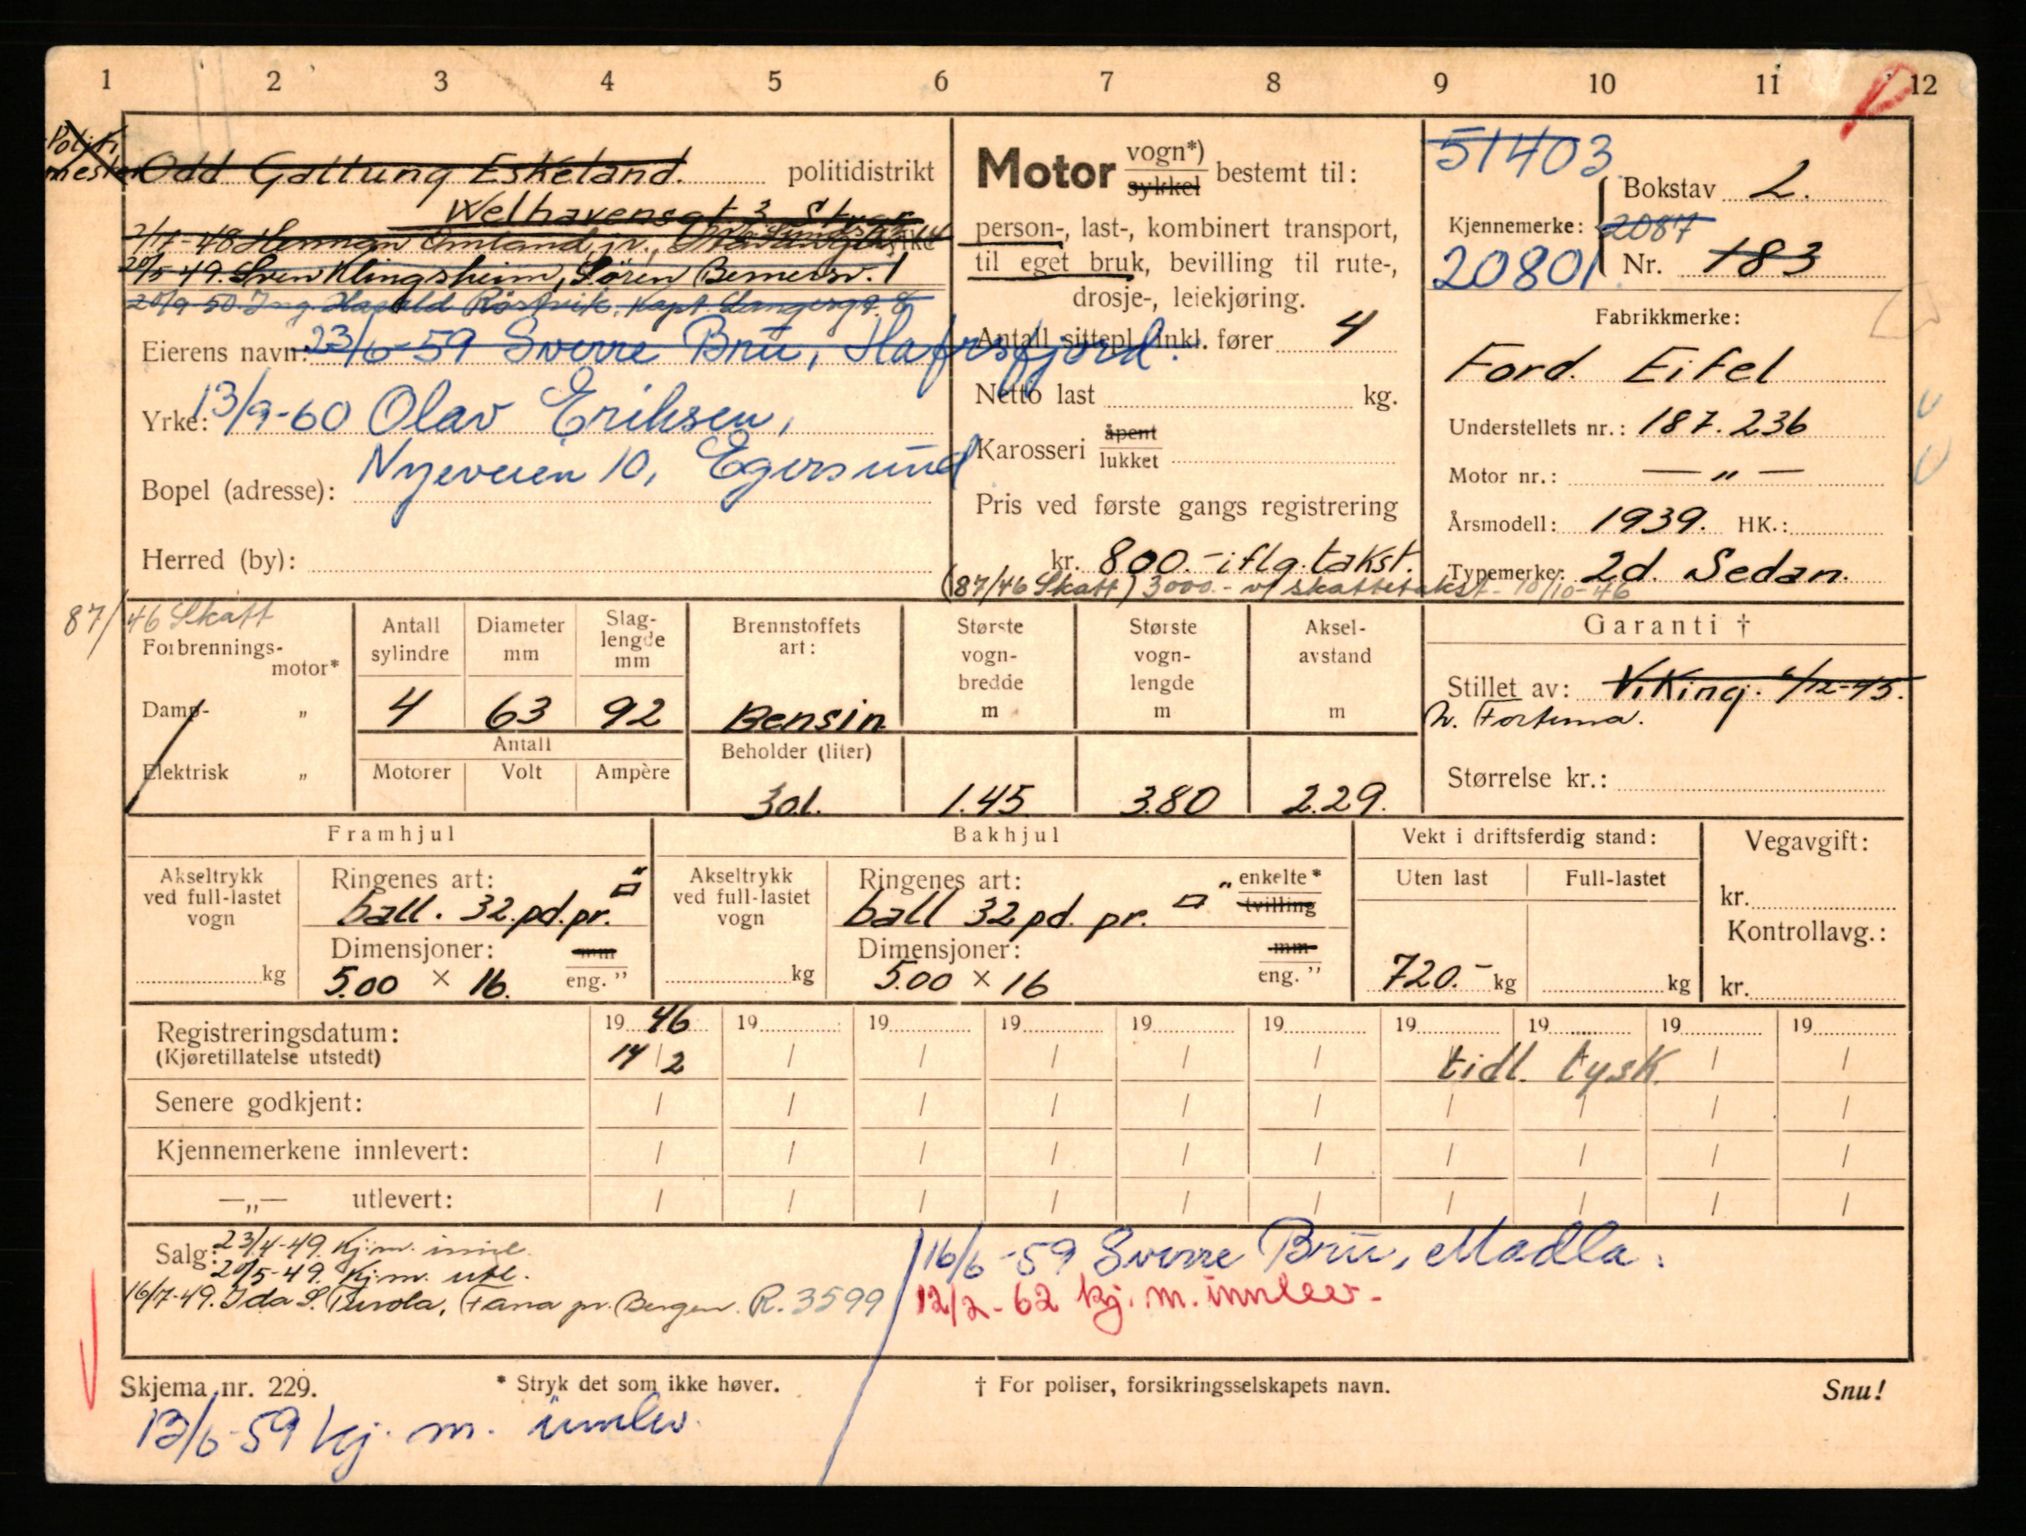 1 2 3 4 5 6 7 8 9 10 11 12
Politi
mester
Odd Galtung Eskeland. politidistrikt
Welhavensgt. 3
7-48 Herman Omland jr.,
20/5-49. Sven Klingsheim, Sören Bernersv. 1
20/9-50 Ing. Harald Röstvik. Kapt. Langesgt. 8
Eierens navn: 23/6-59 Sverre Bru, Hafrsfjord.
Yrke: 13/9-60 Olav Eriksen,
Nyeveien 10, Egersund
Bopel (adresse):
Herred (by):
Motor vogn*)
sykkel bestemt til:
person-, last-, kombinert transport,
til eget bruk, bevilling til rute-,
drosje-, leiekjøring.
Antall sittepl. inkl. fører 4
Netto last kg.
Karosseri åpent
lukket
Pris ved første gangs registrering
kr. 800.- iflg. takst.
(87/46 Skatt) 3000.- v/ skattetakst - 10/10-46
51403
Bokstav L.
Kjennemerke: 2087
20801 Nr. 183
Fabrikkmerke:
Ford Eifel
Understellets nr.: 187.236
Motor nr.: — „ —
Årsmodell: 1939. HK.:
Typemerke: 2d. Sedan.
87/46 Skatt
Forbrennings-
motor*
Damp- „
Elektrisk „
Antall
sylindre
4
Diameter
mm
63
Slag-
lengde
mm
92
Antall
Motorer Volt Ampère
Brennstoffets
art:
Bensin
Beholder (liter)
30 l.
Største
vogn-
bredde
m
1.45
Største
vogn-
lengde
m
3.80
Aksel-
avstand
m
2.29.
Garanti †
Stillet av: Viking. 6/12-45.
N. Fortuna.
Størrelse kr.:
Framhjul
Akseltrykk
ved full-lastet
vogn
kg
Ringenes art:
ball. 32 pd. pr. □"
Dimensjoner: mm
5.00 × 16. eng. ”
Bakhjul
Akseltrykk
ved full-lastet
vogn
kg
Ringenes art: enkelte*
ball 32 pd. pr. □" tvilling
Dimensjoner: mm
5.00 × 16 eng. ”
Vekt i driftsferdig stand:
Uten last Full-lastet
720.- kg kg
Vegavgift:
kr.
Kontrollavg.:
kr.
Registreringsdatum: 19 46 19 19 19 19 19 19 19 19 19
(Kjøretillatelse utstedt) 14/2 / / / / / tidl. tysk. / /
Senere godkjent: / / / / / / / / / /
Kjennemerkene innlevert: / / / / / / / / / /
—„— utlevert: / / / / / / / / / /
Salg: 23/4-49. Kj.m. innl.
20/5-49. Kj.m. utl.
16/7-49. Ida S. Fana pr. Bergen. R. 3599
16/6-59 Sverre Bru, Madla.
12/2-62 kj. m. innlev.
Skjema nr. 229. * Stryk det som ikke høver. † For poliser, forsikringsselskapets navn. Snu!
13/6-59 kj. m. innlev.